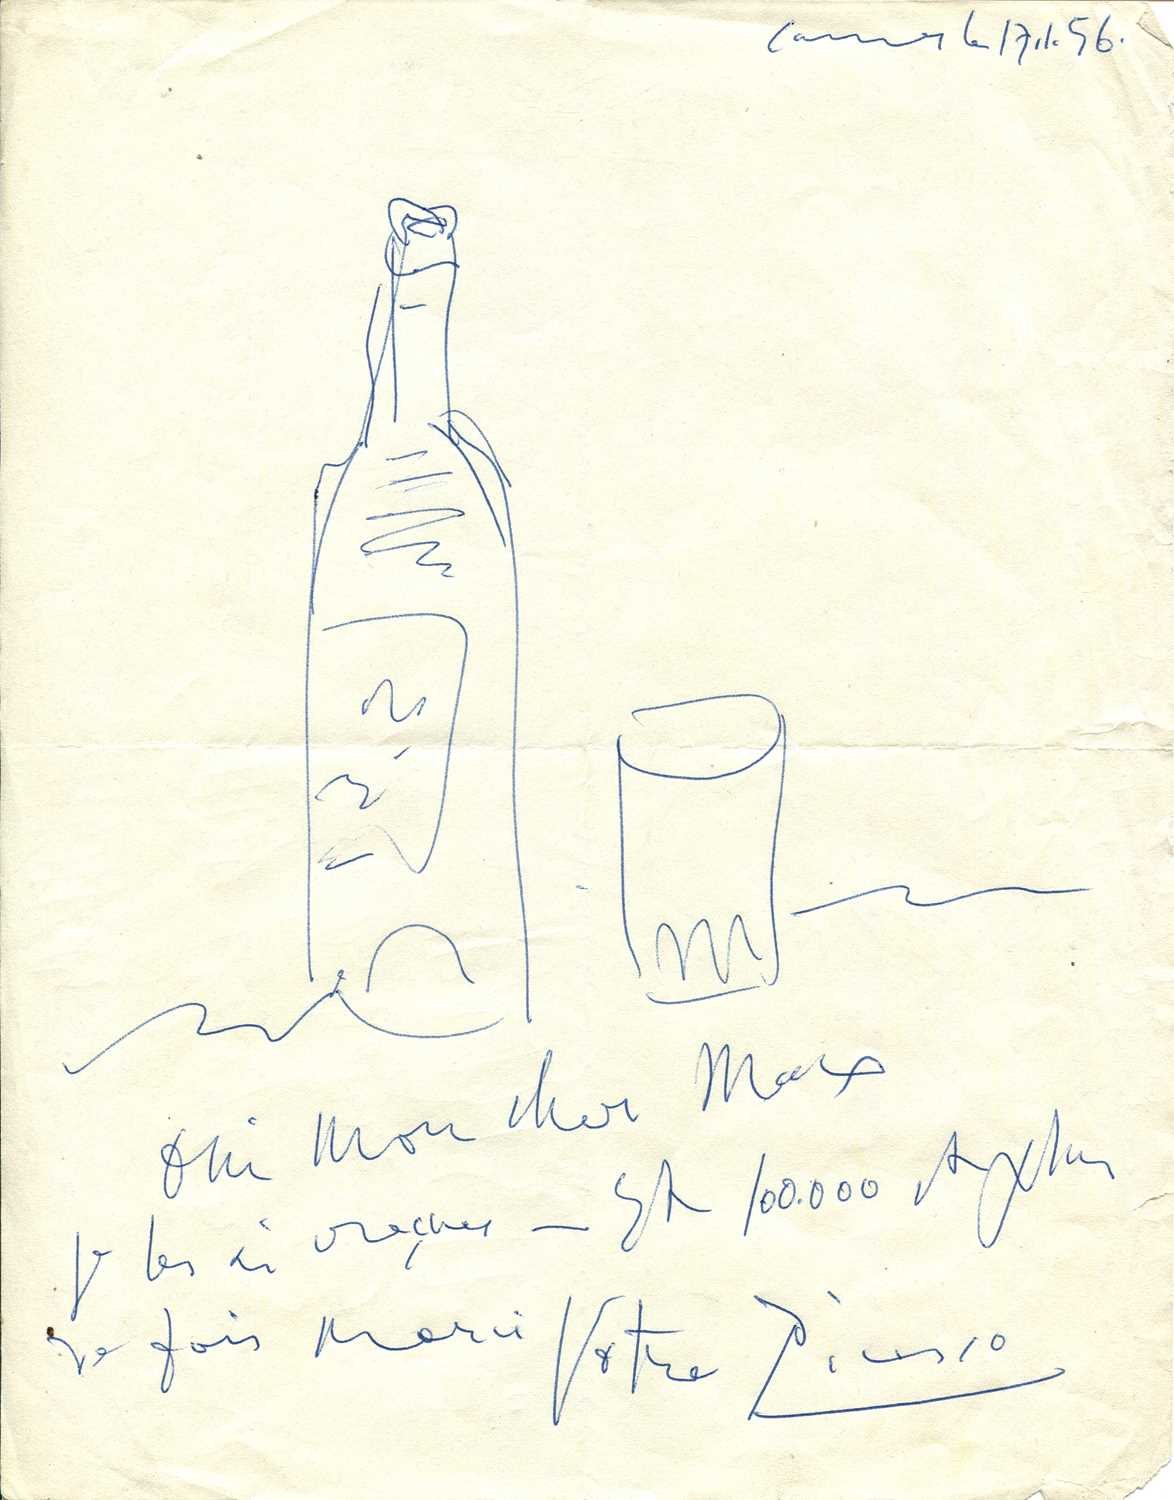 Cannes le 17.1.56.
Oui Mon cher Max
je les ai reçues — Et 100.000
fois merci Votre Picasso